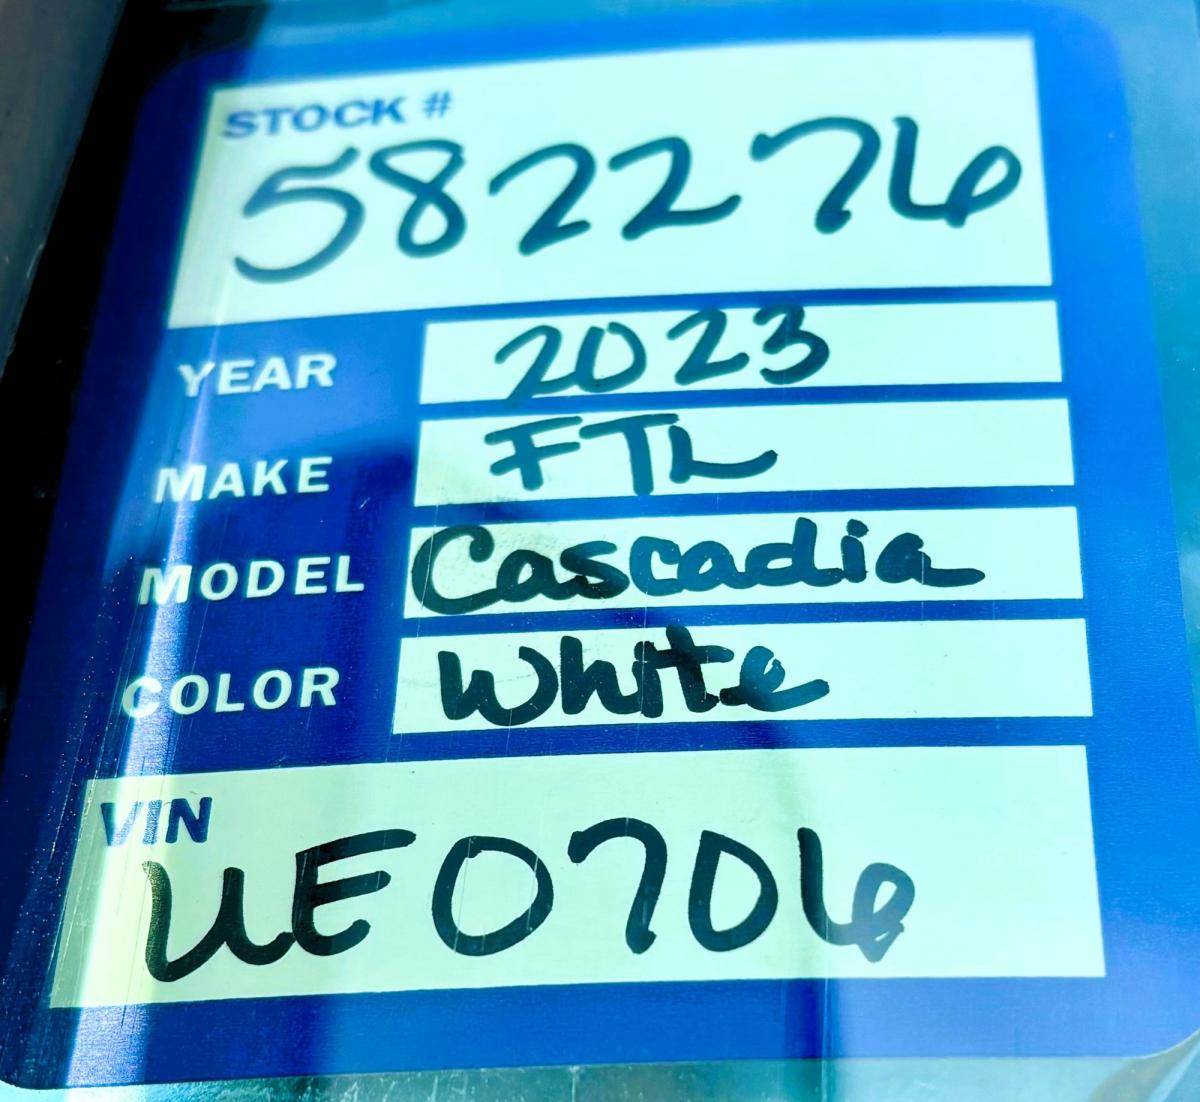 STOCK #
582276
YEAR 2023
MAKE FTL
MODEL Cascadia
COLOR White
VIN
UE0706